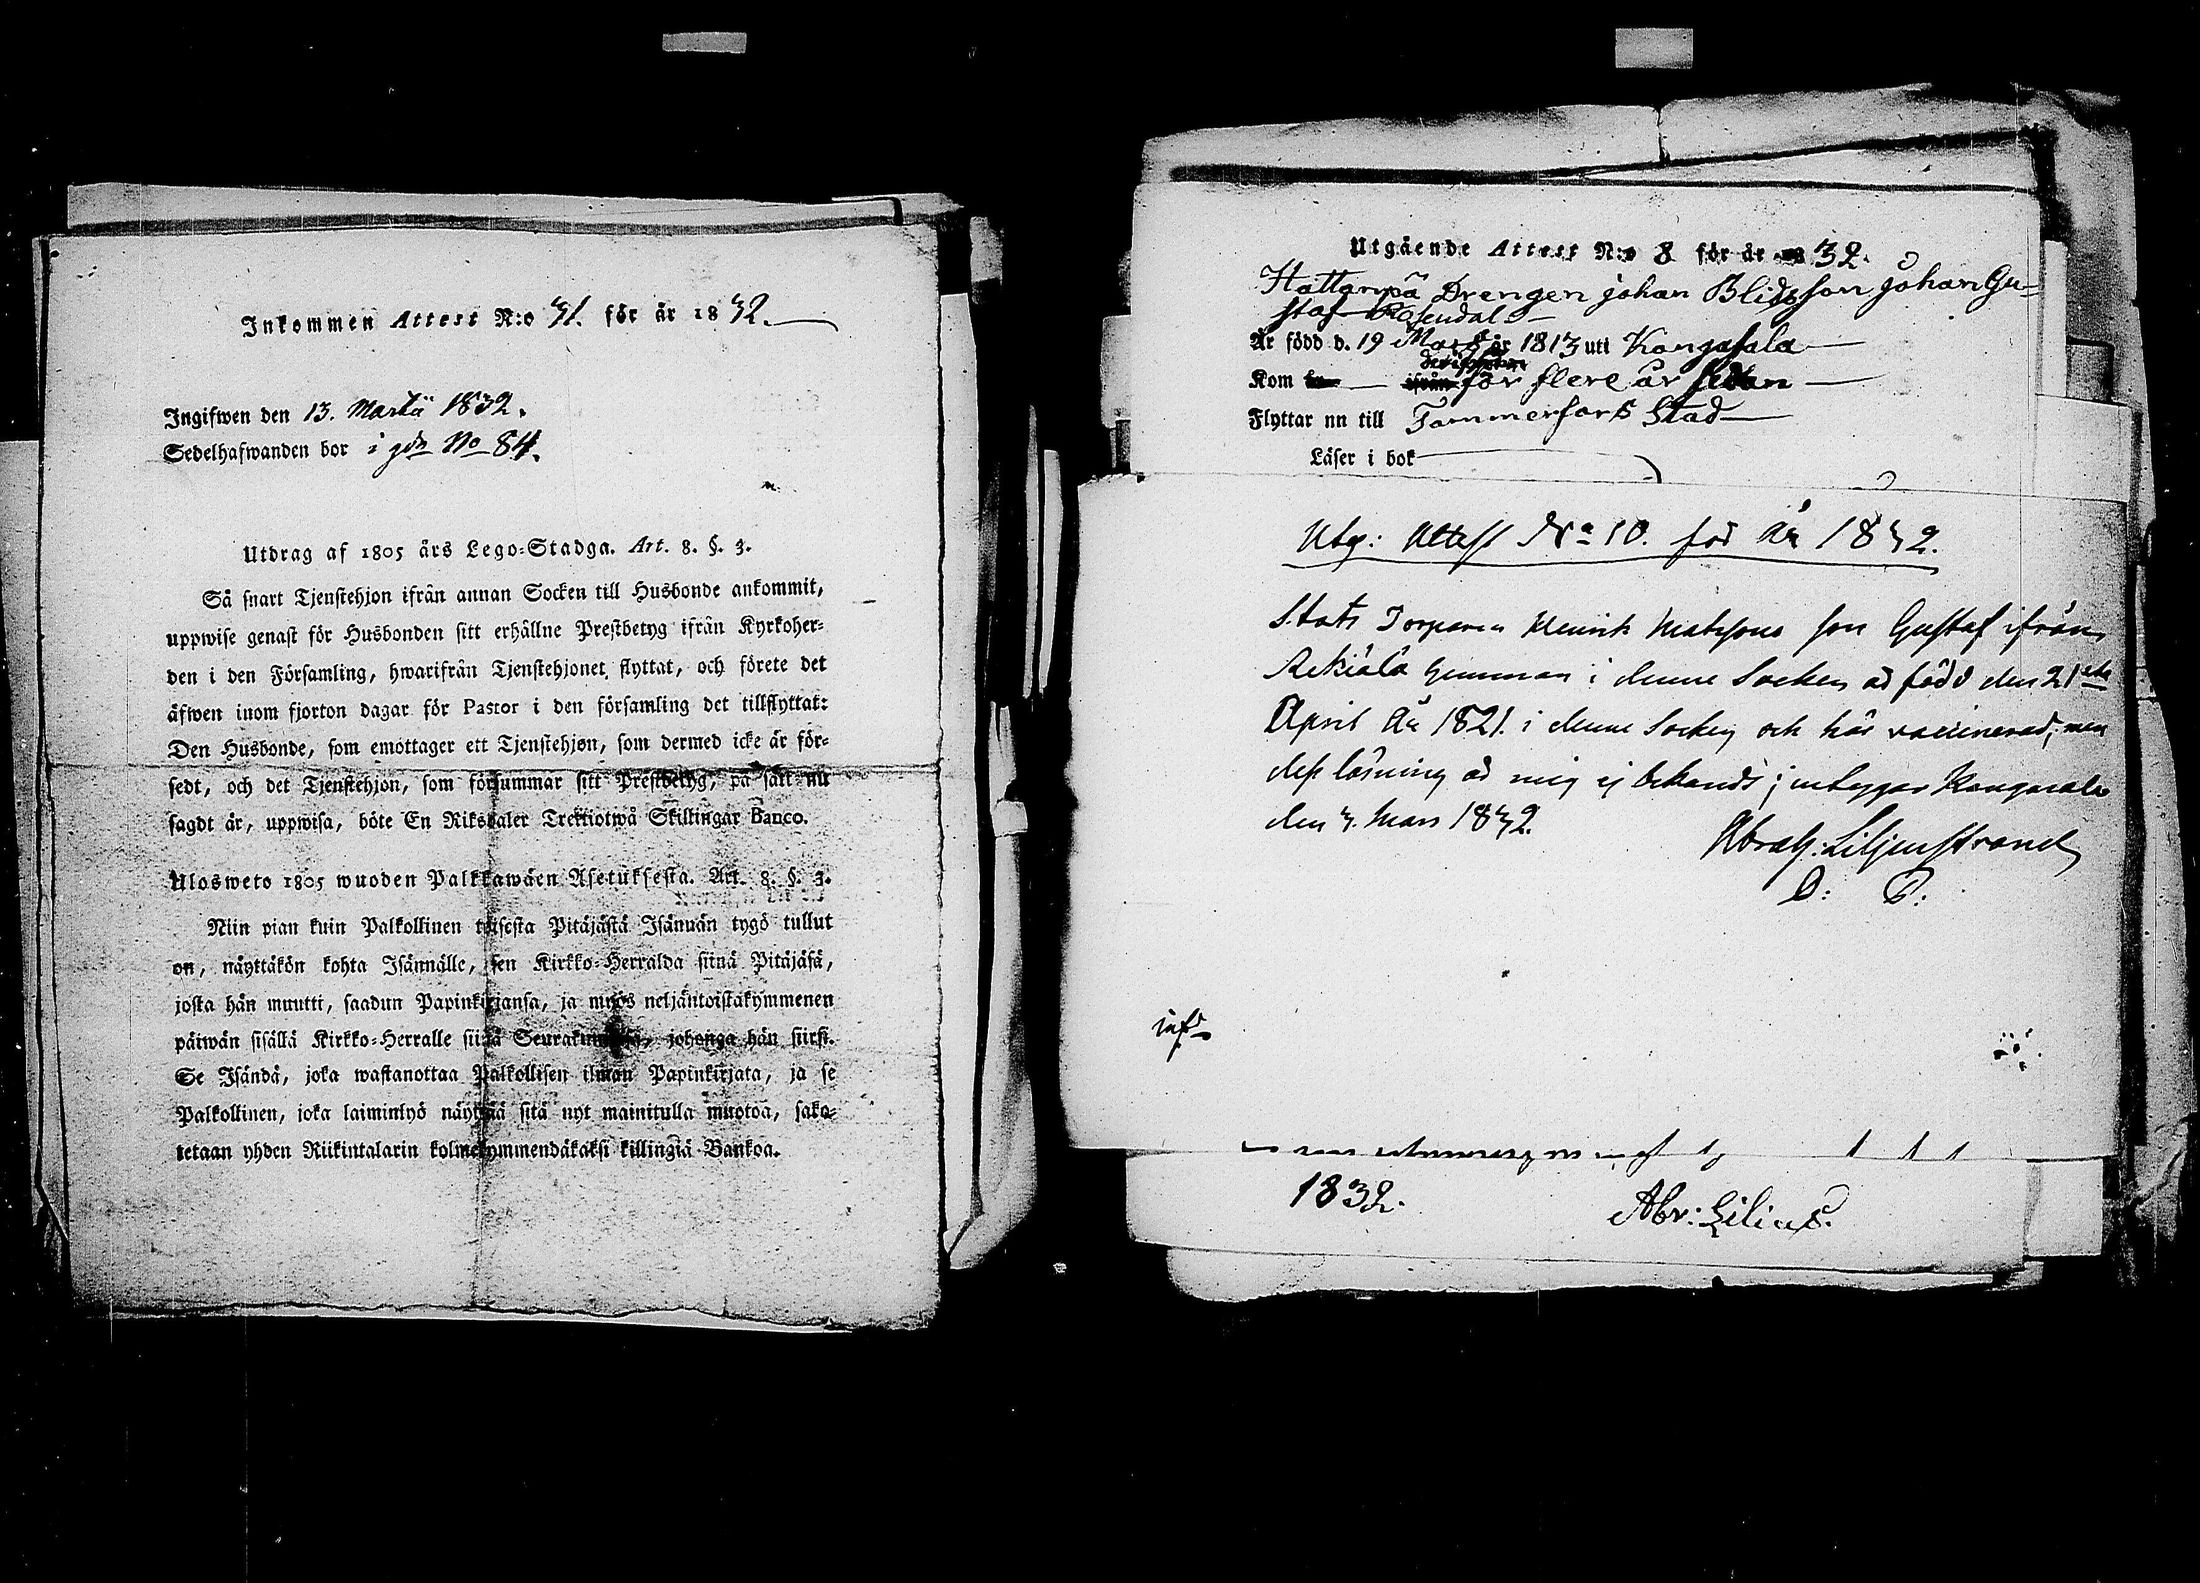 Inkommen Attest N:o 31. för år 1832.
Ingifwen den 13. Martii 1832.
Sedelhafwanden bor i gdn No 84.
Utdrag af 1805 års Lego-Stadga. Art. 8. §. 3.
Så snart Tjenstehjon ifrån annan Socken till Husbonde ankommit,
uppwise genast för Husbonden sitt erhållne Prestbetyg ifrån Kyrkoher-
den i den Församling, hwarifrån Tjenstehjonet flyttat, och förete det
äfwen inom fjorton dagar för Pastor i den församling det tillflyttat:
Den Husbonde, som emottager ett Tjenstehjon, som dermed icke är för-
sedt, och det Tjenstehjon, som försummar sitt Prestbetyg, på sätt nu
sagdt är, uppwisa, böte En Riksdaler Trettiotwå Skillingar Banco.
Ulosweto 1805 wuoden Palkkawäen Asetuksesta. Art. 8. §. 3.
Niin pian kuin Palkollinen toisesta Pitäjästä Isännän tygö tullut
on, näyttäkön kohta Isännälle, sen Kirkko-Herralda siinä Pitäjäsä,
josta hän muutti, saadun Papinkirjansa, ja myös neljäntoistakymmenen
päiwän sisällä Kirkko-Herralle siinä Seurakunnasa, johonga hän siirsi.
Se Isändä, joka wastanottaa Palkollisen ilman Papinkirjata, ja se
Palkollinen, joka laiminlyö näyttää sitä nyt mainitulla muotoa, sako-
tetaan yhden Riikintalarin kolmekymmendäkaksi killingiä Bankoa.
Utgående Attest N:o 8 för år 1832.
Hattanpä Drengen Johan Blidsson Johan Gu-
staf Rosendal
Är född d. 19 Mars år 1813 uti Kangasala
Kom för flere år sedan
Flyttar nu till Tammerfors Stad
Läser i bok
Utg: Attest No 10. för År 1832.
Stats Torparen Henrik Matssons son Gustaf ifrån
Gumman i denne Socken är född den 21sta
April År 1821. i denne Socken och här vaccinerad; men
dess läsning är mig ej bekandt; intygar Kangasala
den 3. Mars 1832.
Abrah: Liljenstrand
1832.
Abr: Lilius.